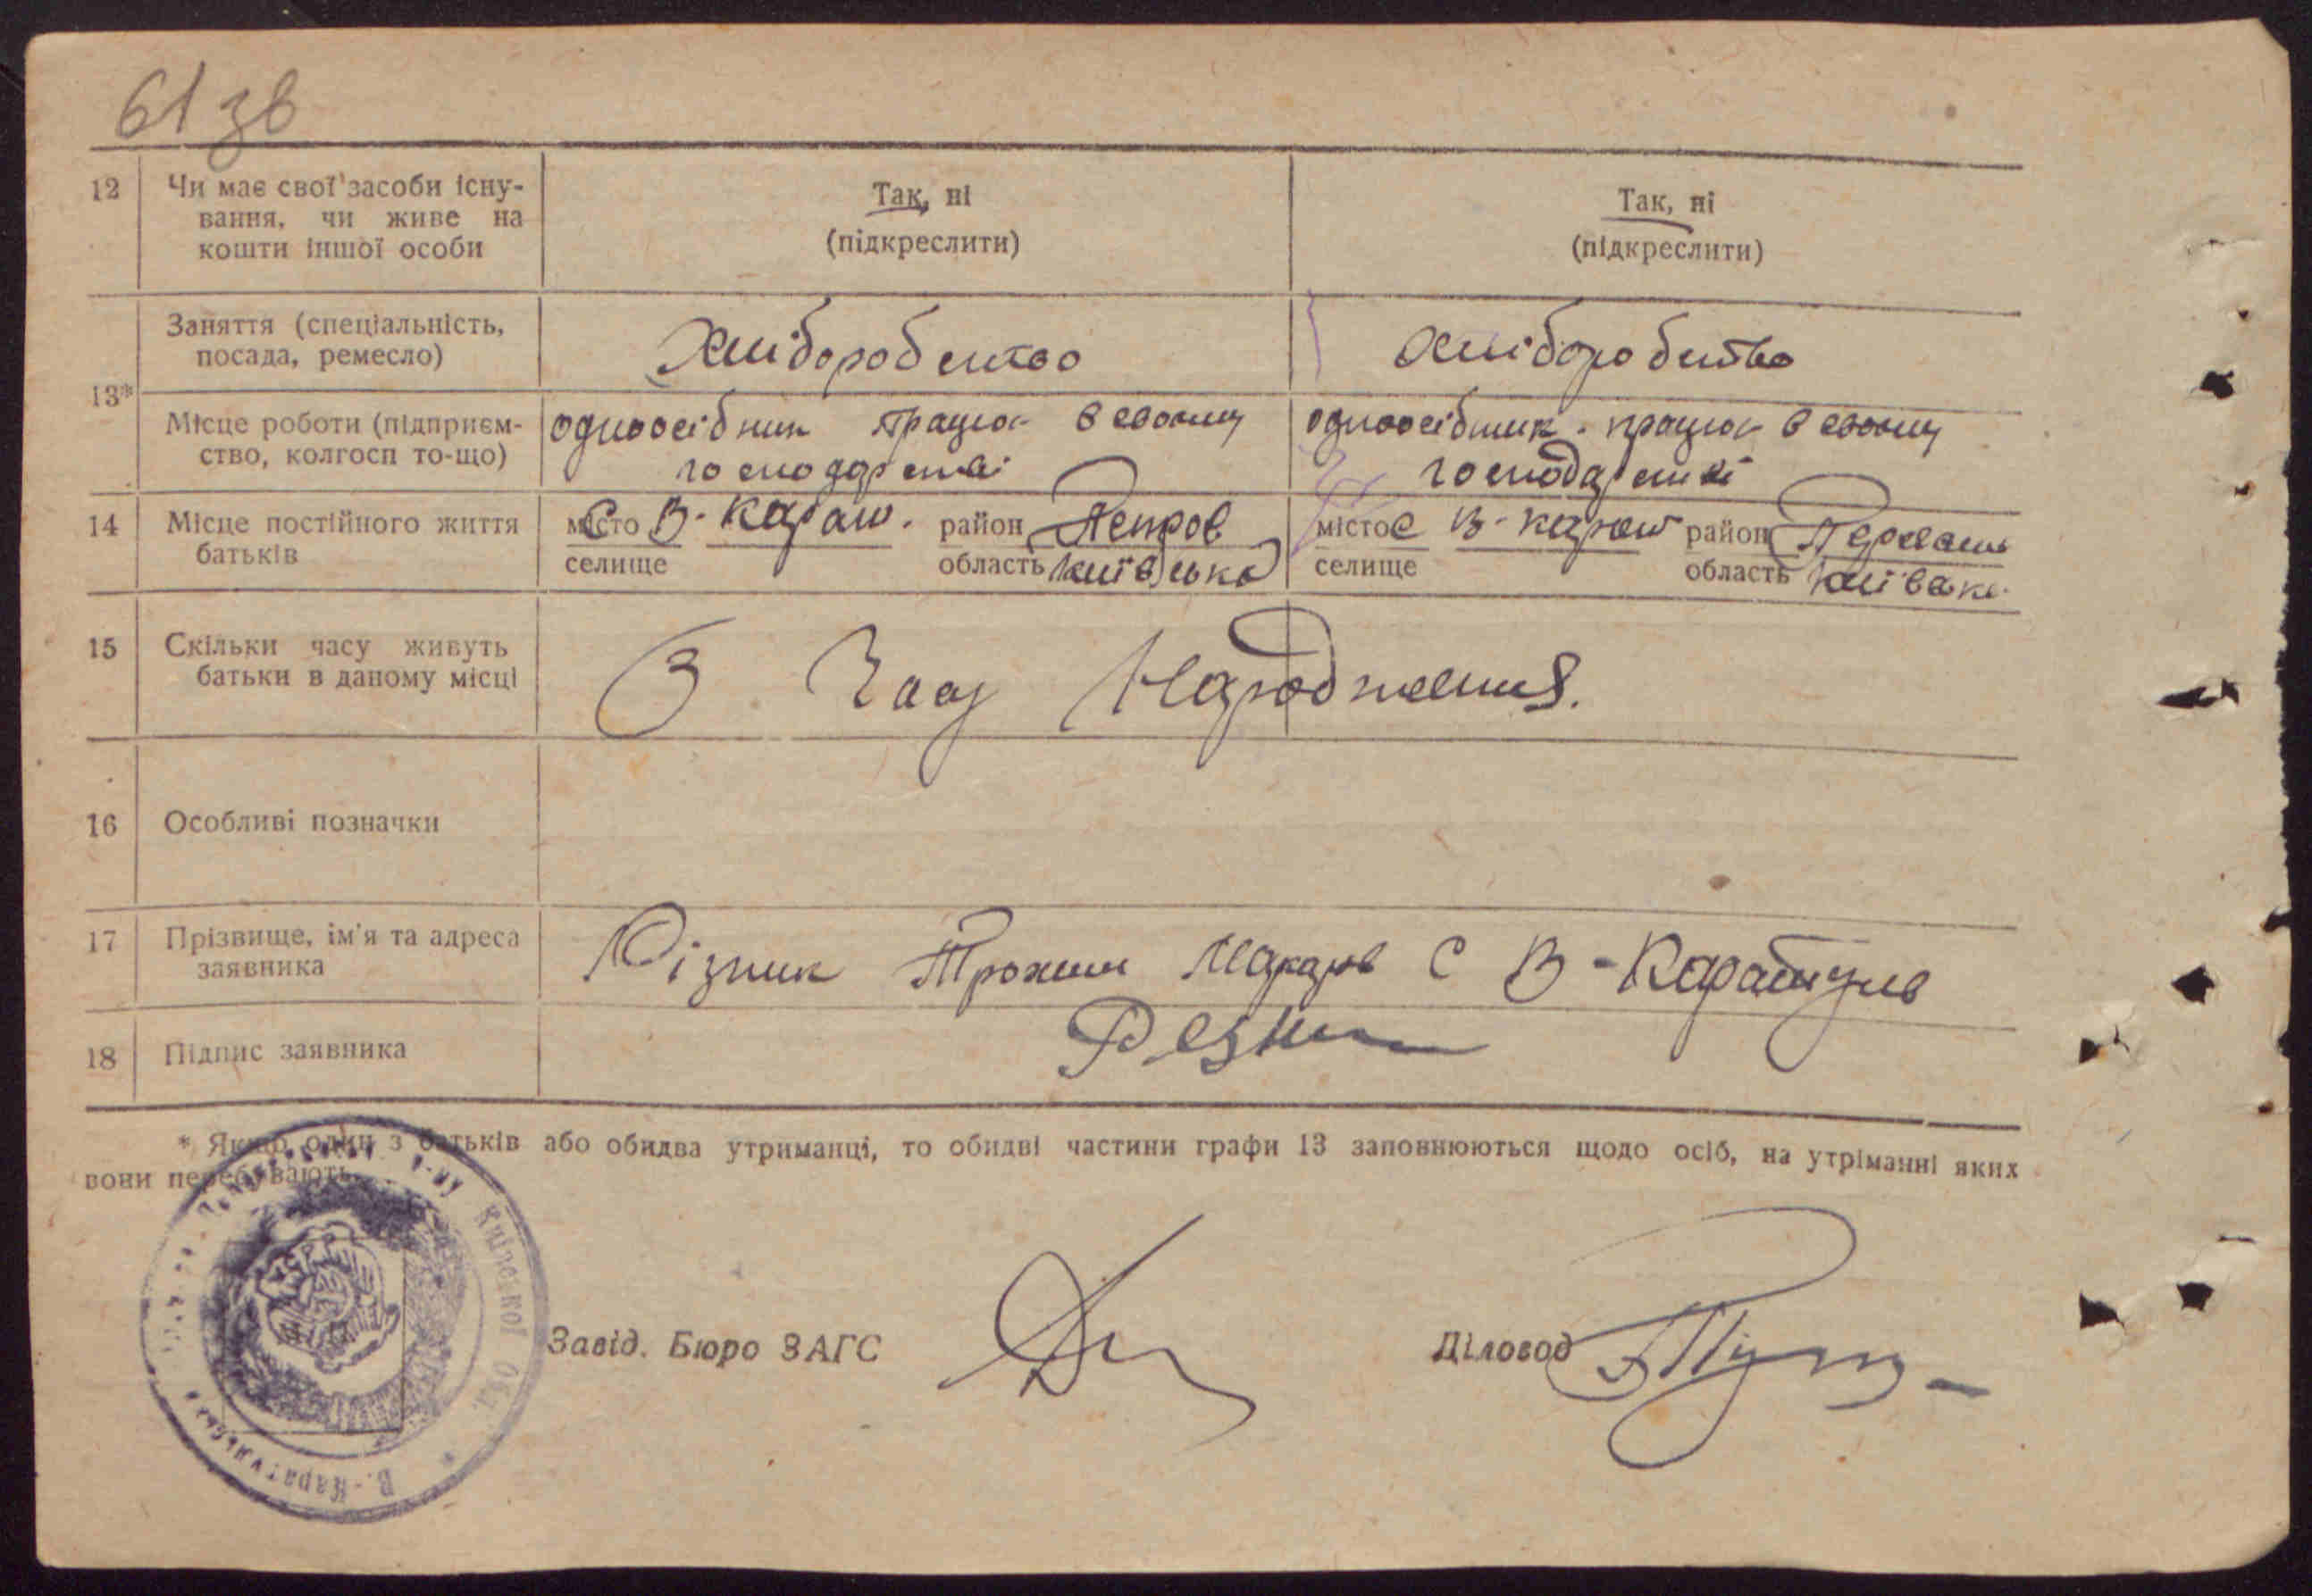 61 зв
12 Чи має свої засоби існу- Так, ні Так, ні
вання, чи живе на (підкреслити) (підкреслити)
кошти іншої особи
13* Заняття (спеціальність, Хліборобство Хліборобство
посада, ремесло)
Місце роботи (підприєм- одноосібник працює в своєму одноосібник. працює в своєму
ство, колгосп то-що) господарстві господарстві
14 Місце постійного життя місто с В-Караш. район місто с В-Караш район
батьків селище область Київська селище область Київськ.
15 Скільки часу живуть З Часу Народження.
батьки в даному місці
16 Особливі позначки
17 Прізвище, ім'я та адреса Різник Трохим Макаров С В-Каратуль
заявника
18 Підпис заявника Резник
* Якщо один з батьків або обидва утриманці, то обидві частини графи 13 заповнюються щодо осіб, на утріманні яких
вони перебувають.
р-ну Київської Обл. * В.-Каратульська
УСРР
Завід. Бюро ЗАГС Діловод